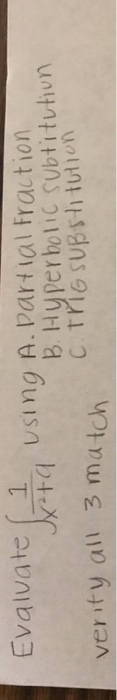 Evaluate ∫ 1/(x²+9) using A. Partial Fraction
B. Hyperbolic subtitution
C. TRIG SUBStitution
verity all 3 match